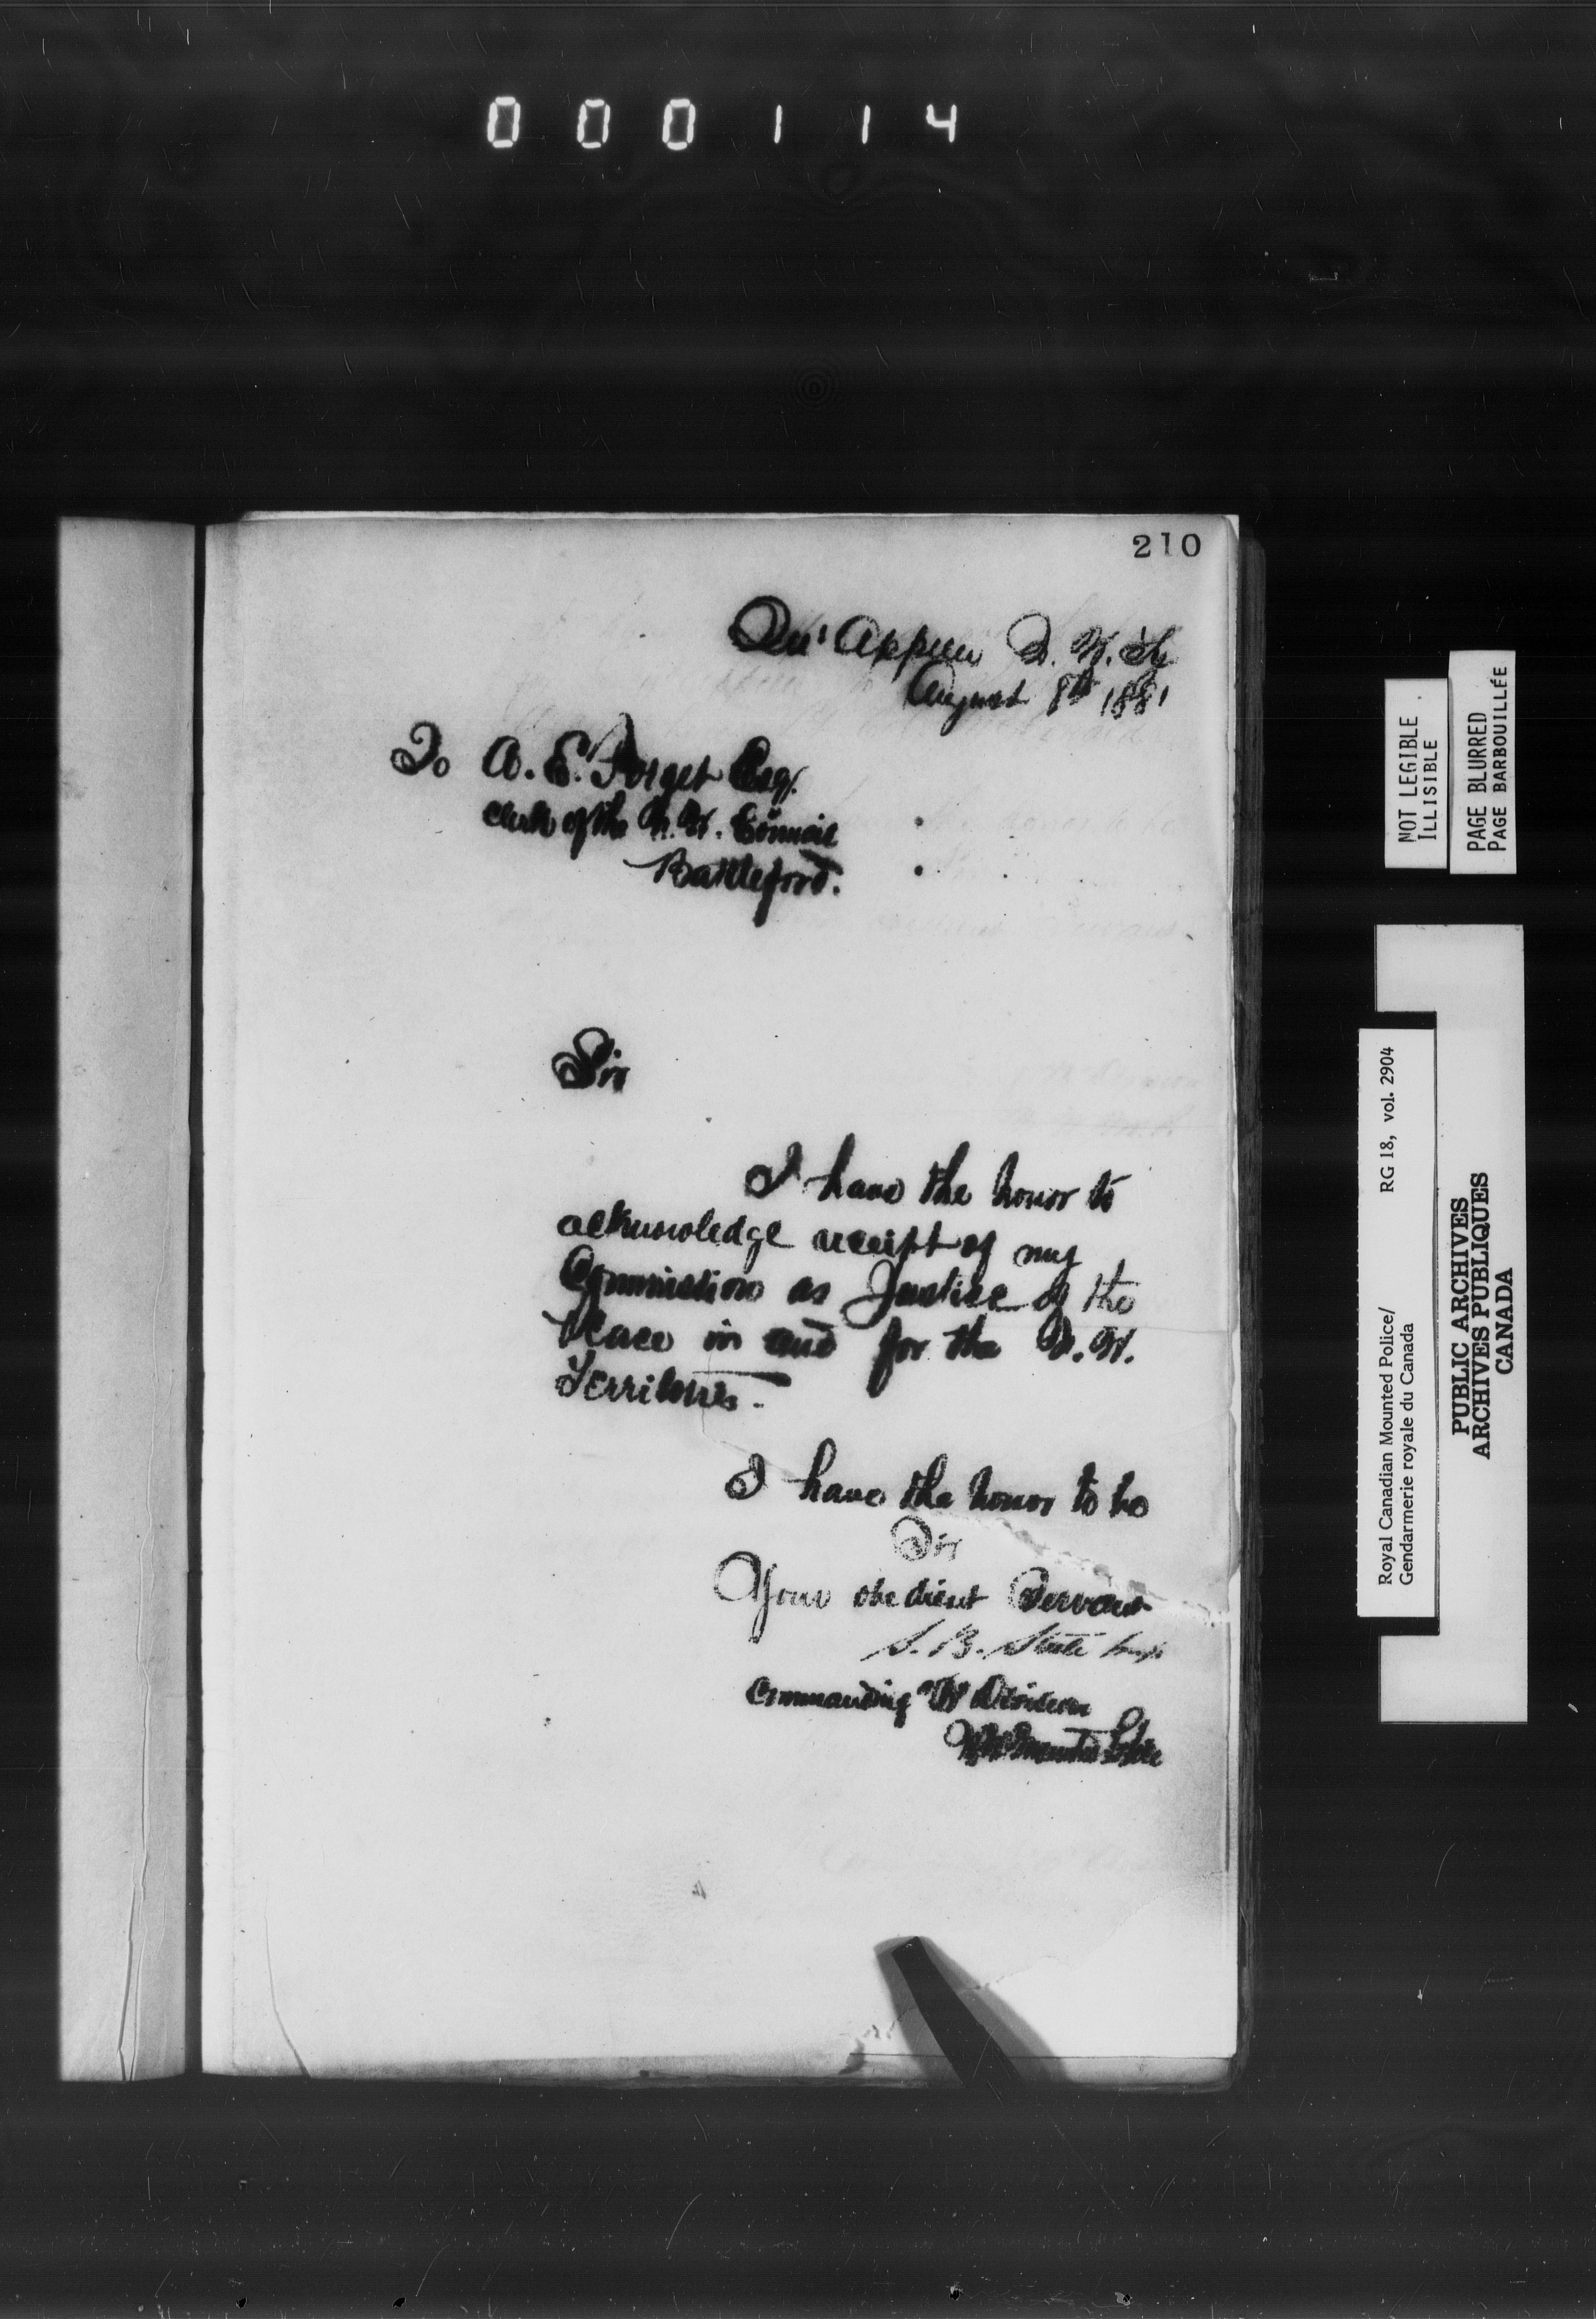 000114
210
Qu'Appelle N. W. Ty
August 8th 1881
To A. E. Forget Esq.
Clerk of the N. W. Council
Battleford.
Sir
I have the honor to
acknowledge receipt of my
Commission as Justice of the
Peace in and for the N. W.
Territories.
I have the honor to be
Sir
Your obedient Servant
S. B. Steele Insp
Commanding "B" Division
N W Mounted Police
NOT LEGIBLE
ILLISIBLE
PAGE BLURRED
PAGE BARBOUILLÉE
Royal Canadian Mounted Police/ RG 18, vol. 2904
Gendarmerie royale du Canada
PUBLIC ARCHIVES
ARCHIVES PUBLIQUES
CANADA